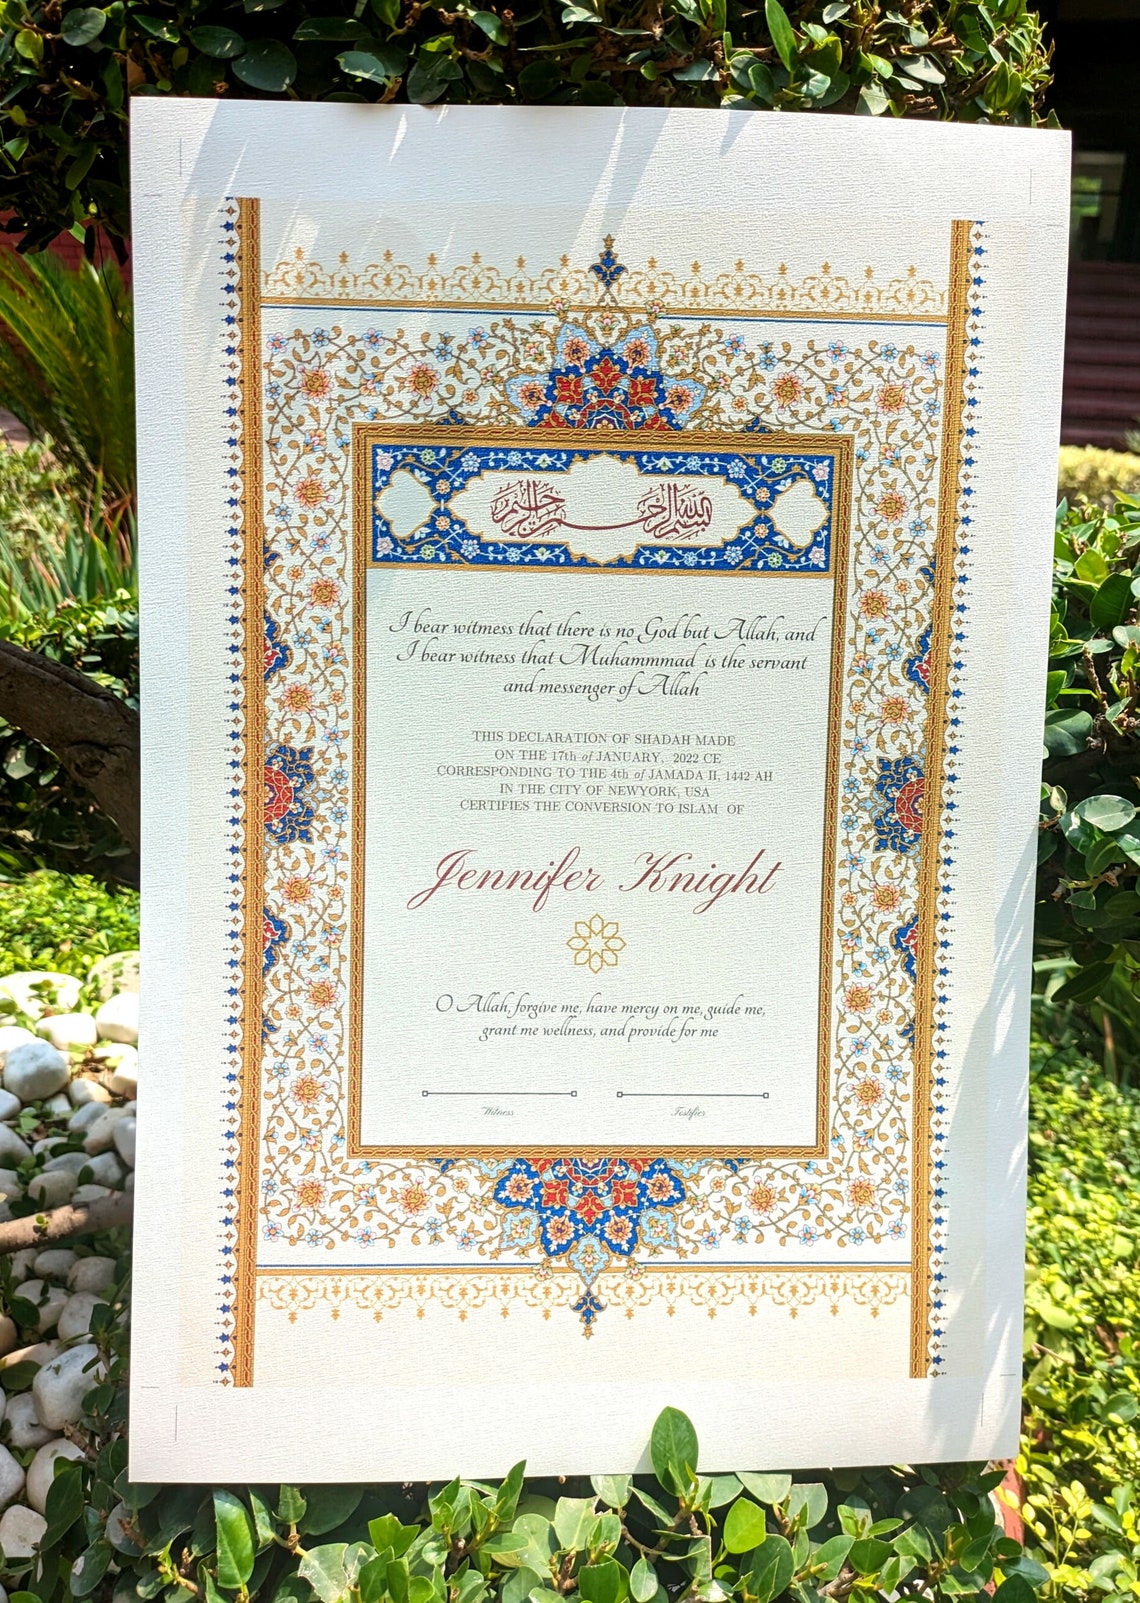 بسم الله الرحمن الرحيم
I bear witness that there is no God but Allah, and
I bear witness that Muhammmad is the servant
and messenger of Allah
THIS DECLARATION OF SHADAH MADE
ON THE 17th of JANUARY, 2022 CE
CORRESPONDING TO THE 4th of JAMADA II, 1442 AH
IN THE CITY OF NEWYORK, USA
CERTIFIES THE CONVERSION TO ISLAM OF
Jennifer Knight
O Allah, forgive me, have mercy on me, guide me,
grant me wellness, and provide for me
Witness Testifier